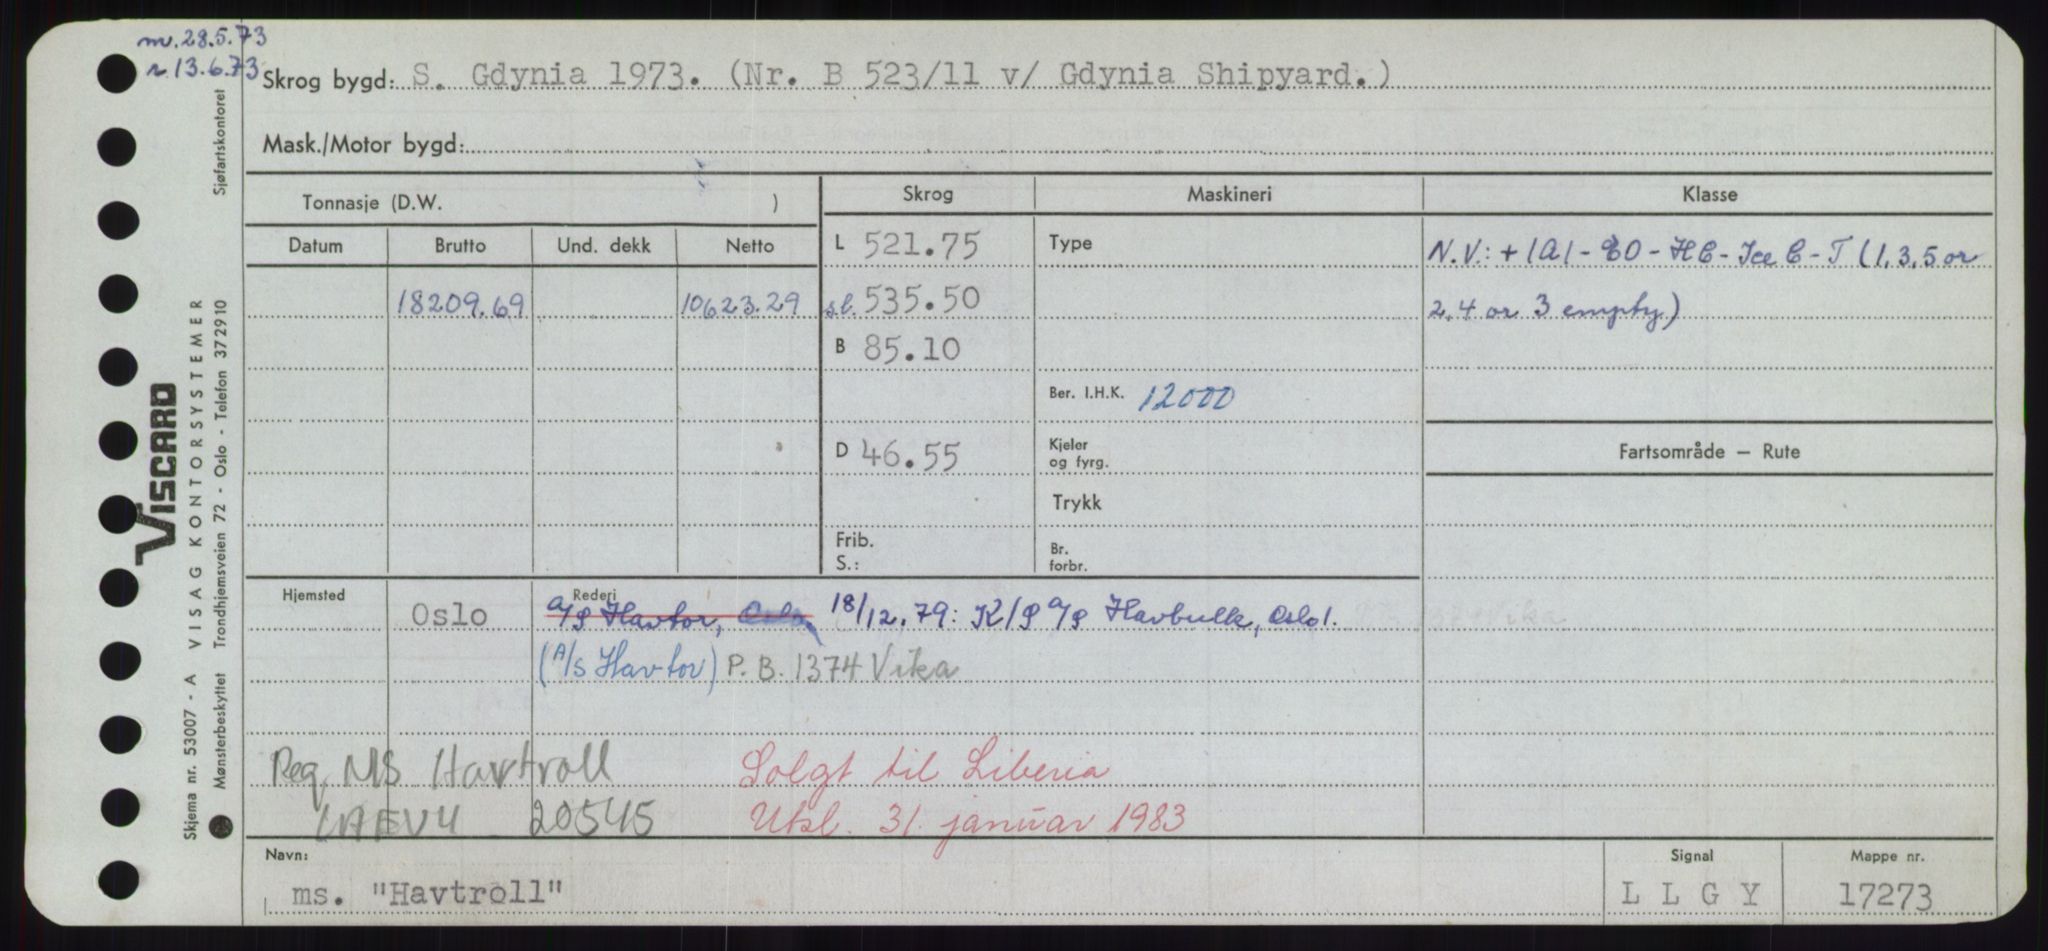 m. 28.5.73
r. 13.6.73
Skrog bygd: S. Gdynia 1973. (Nr. B 523/11 v/ Gdynia Shipyard.)
Mask./Motor bygd:
Tonnasje (D.W. )
Skrog
Maskineri
Klasse
Datum Brutto Und. dekk Netto
L 521.75
Type
N.V.: + 1A1 - EO - HC - Ice C - T (1, 3, 5 or
18209.69 10623.29
s.l. 535.50
2, 4 or 3 empty.)
B 85.10
Ber. I.H.K. 12000
D 46.55
Kjeler
og fyrg.
Fartsområde — Rute
Trykk
Frib.
S.:
Br.
forbr.
Hjemsted
Rederi
Oslo A/S Havtor, Oslo. 18/12.79: K/S A/S Havbulk, Oslo 1.
(A/S Havtor) P.B. 1374 Vika
Reg. MS Havtroll
Solgt til Liberia
LAEV4 20545
Utkl. 31. januar 1983
Navn:
Signal
Mappe nr.
ms. "Havtroll"
L L G Y
17273
VISCARD
VISAG KONTORSYSTEMER
Skjema nr. 53007 - A
Mønsterbeskyttet Trondhjemsveien 72 - Oslo - Telefon 372910
Sjøfartskontoret